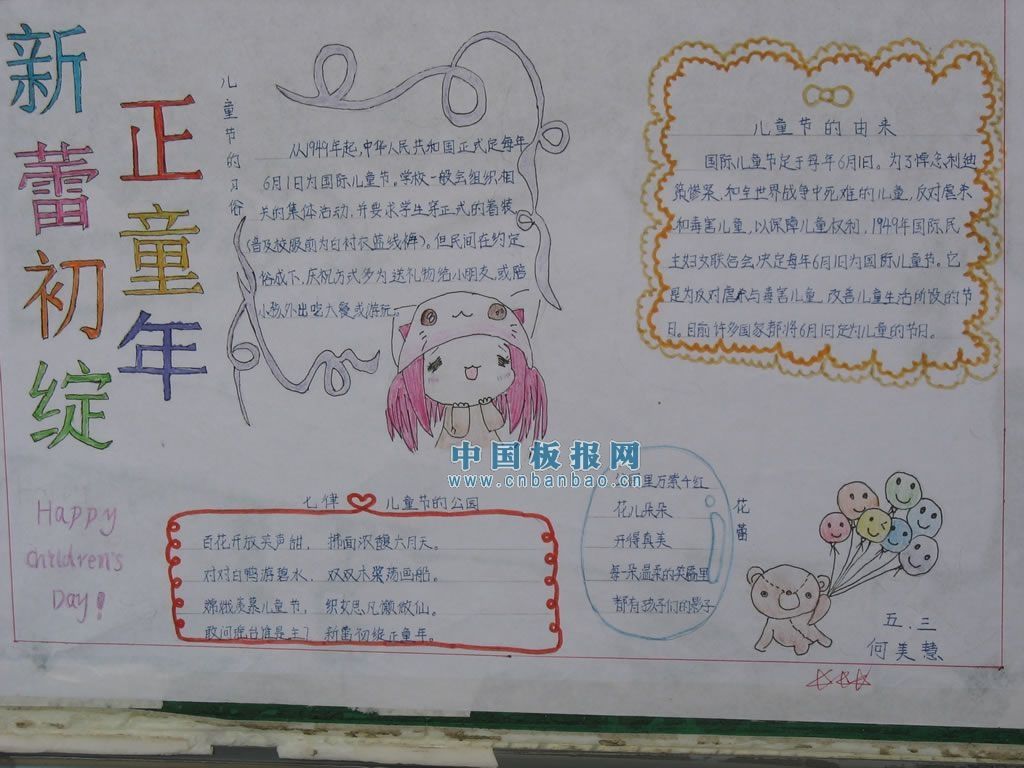 新蕾初绽
正童年
儿童节的习俗
从1949年起,中华人民共和国正式定每年
6月1日为国际儿童节。学校一般会组织相
关的集体活动,并要求学生穿正式的着装
(普及校服前为白衬衣蓝线裤)。但民间在约定
俗成下,庆祝方式多为送礼物给小朋友,或陪
小孩外出吃大餐或游玩。
儿童节的由来
国际儿童节定于每年6月1日。为了悼念利迪
策惨案,和全世界战争中死难的儿童,反对虐杀
和毒害儿童,以保障儿童权利,1949年国际民
主妇女联合会决定每年6月1日为国际儿童节。它
是为反对虐杀与毒害儿童,改善儿童生活所设的节
日。目前许多国家都将6月1日定为儿童的节日。
中国板报网
www.cnbanbao.cn
Happy
Children's
Day!
七律 儿童节的公园
百花开放笑声甜, 拂面浓馥六月天。
对对白鸭游碧水, 双双木桨荡画船。
嫦娥羡慕儿童节, 织女思凡懒做仙。
敢问舞台谁是主? 新蕾初绽正童年。
花蕾
里万紫千红
花儿朵朵
开得真美
每一朵温柔的笑靥里
都有孩子们的影子
五.三
何美慧